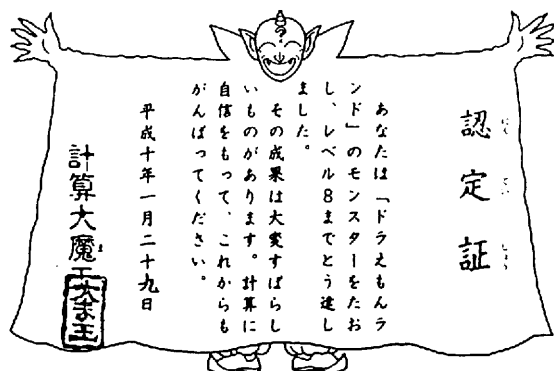 認定証
にんていしょう
あなたは「ドラえもんラ
ンド」のモンスターをたお
し、レベル8までとう達し
ました。
その成果は大変すばらし
いものがあります。計算に
自信をもって、これからも
がんばってください。
平成十年一月二十九日
計算大魔王
ま
大ま王